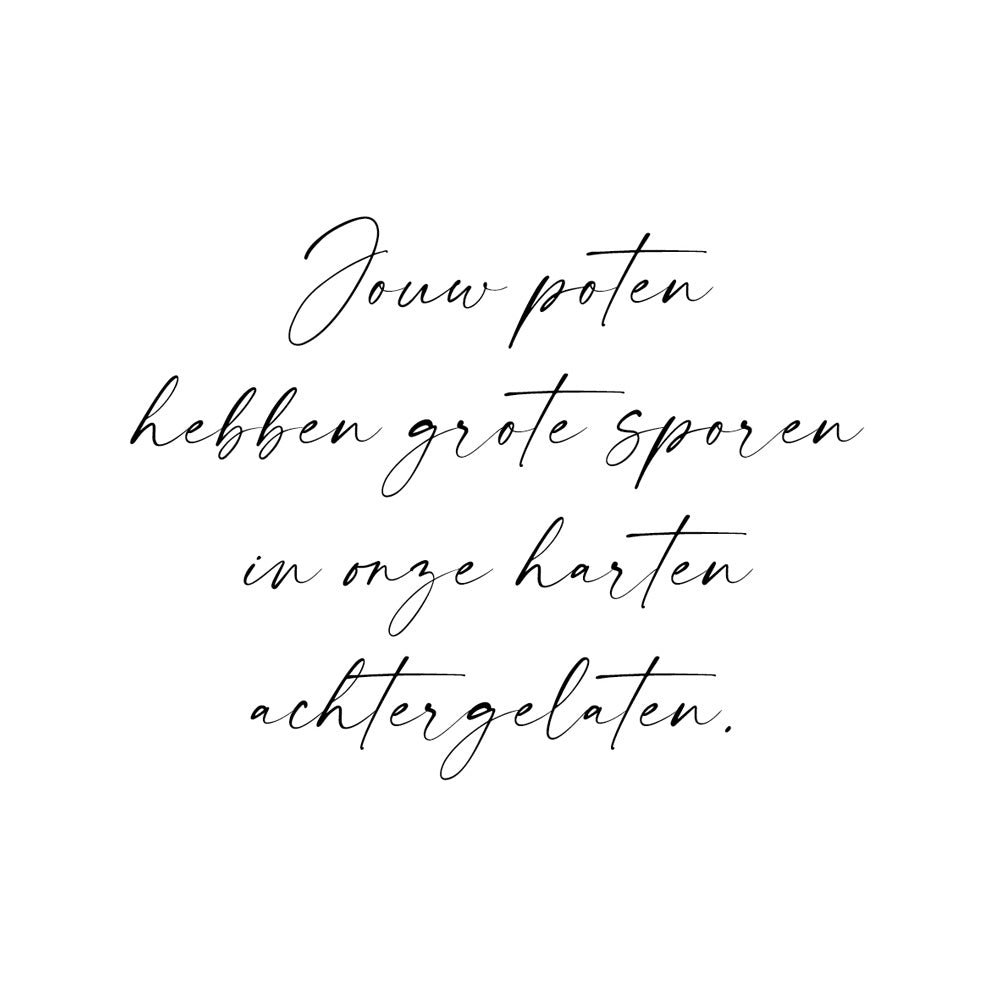 Jouw poten
hebben grote sporen
in onze harten
achtergelaten.